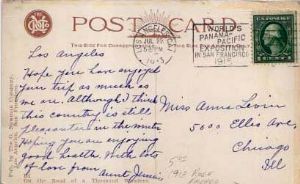 POST CARD
LOS ANGELES, CAL.
JUL
1915
WORLD'S
PANAMA-
PACIFIC
EXPOSITION
IN SAN FRANCISCO
1915
Los Angeles
Hope you have enjoyed
your trip as much as
we are. Although I think
this country is still
pleasanter in the winter
Hoping you are enjoying
good health. With lots
of love from Aunt
Miss Anna Levin
5000 Ellis Ave
Chicago
Ill
On the Road of a Thousand Wonders